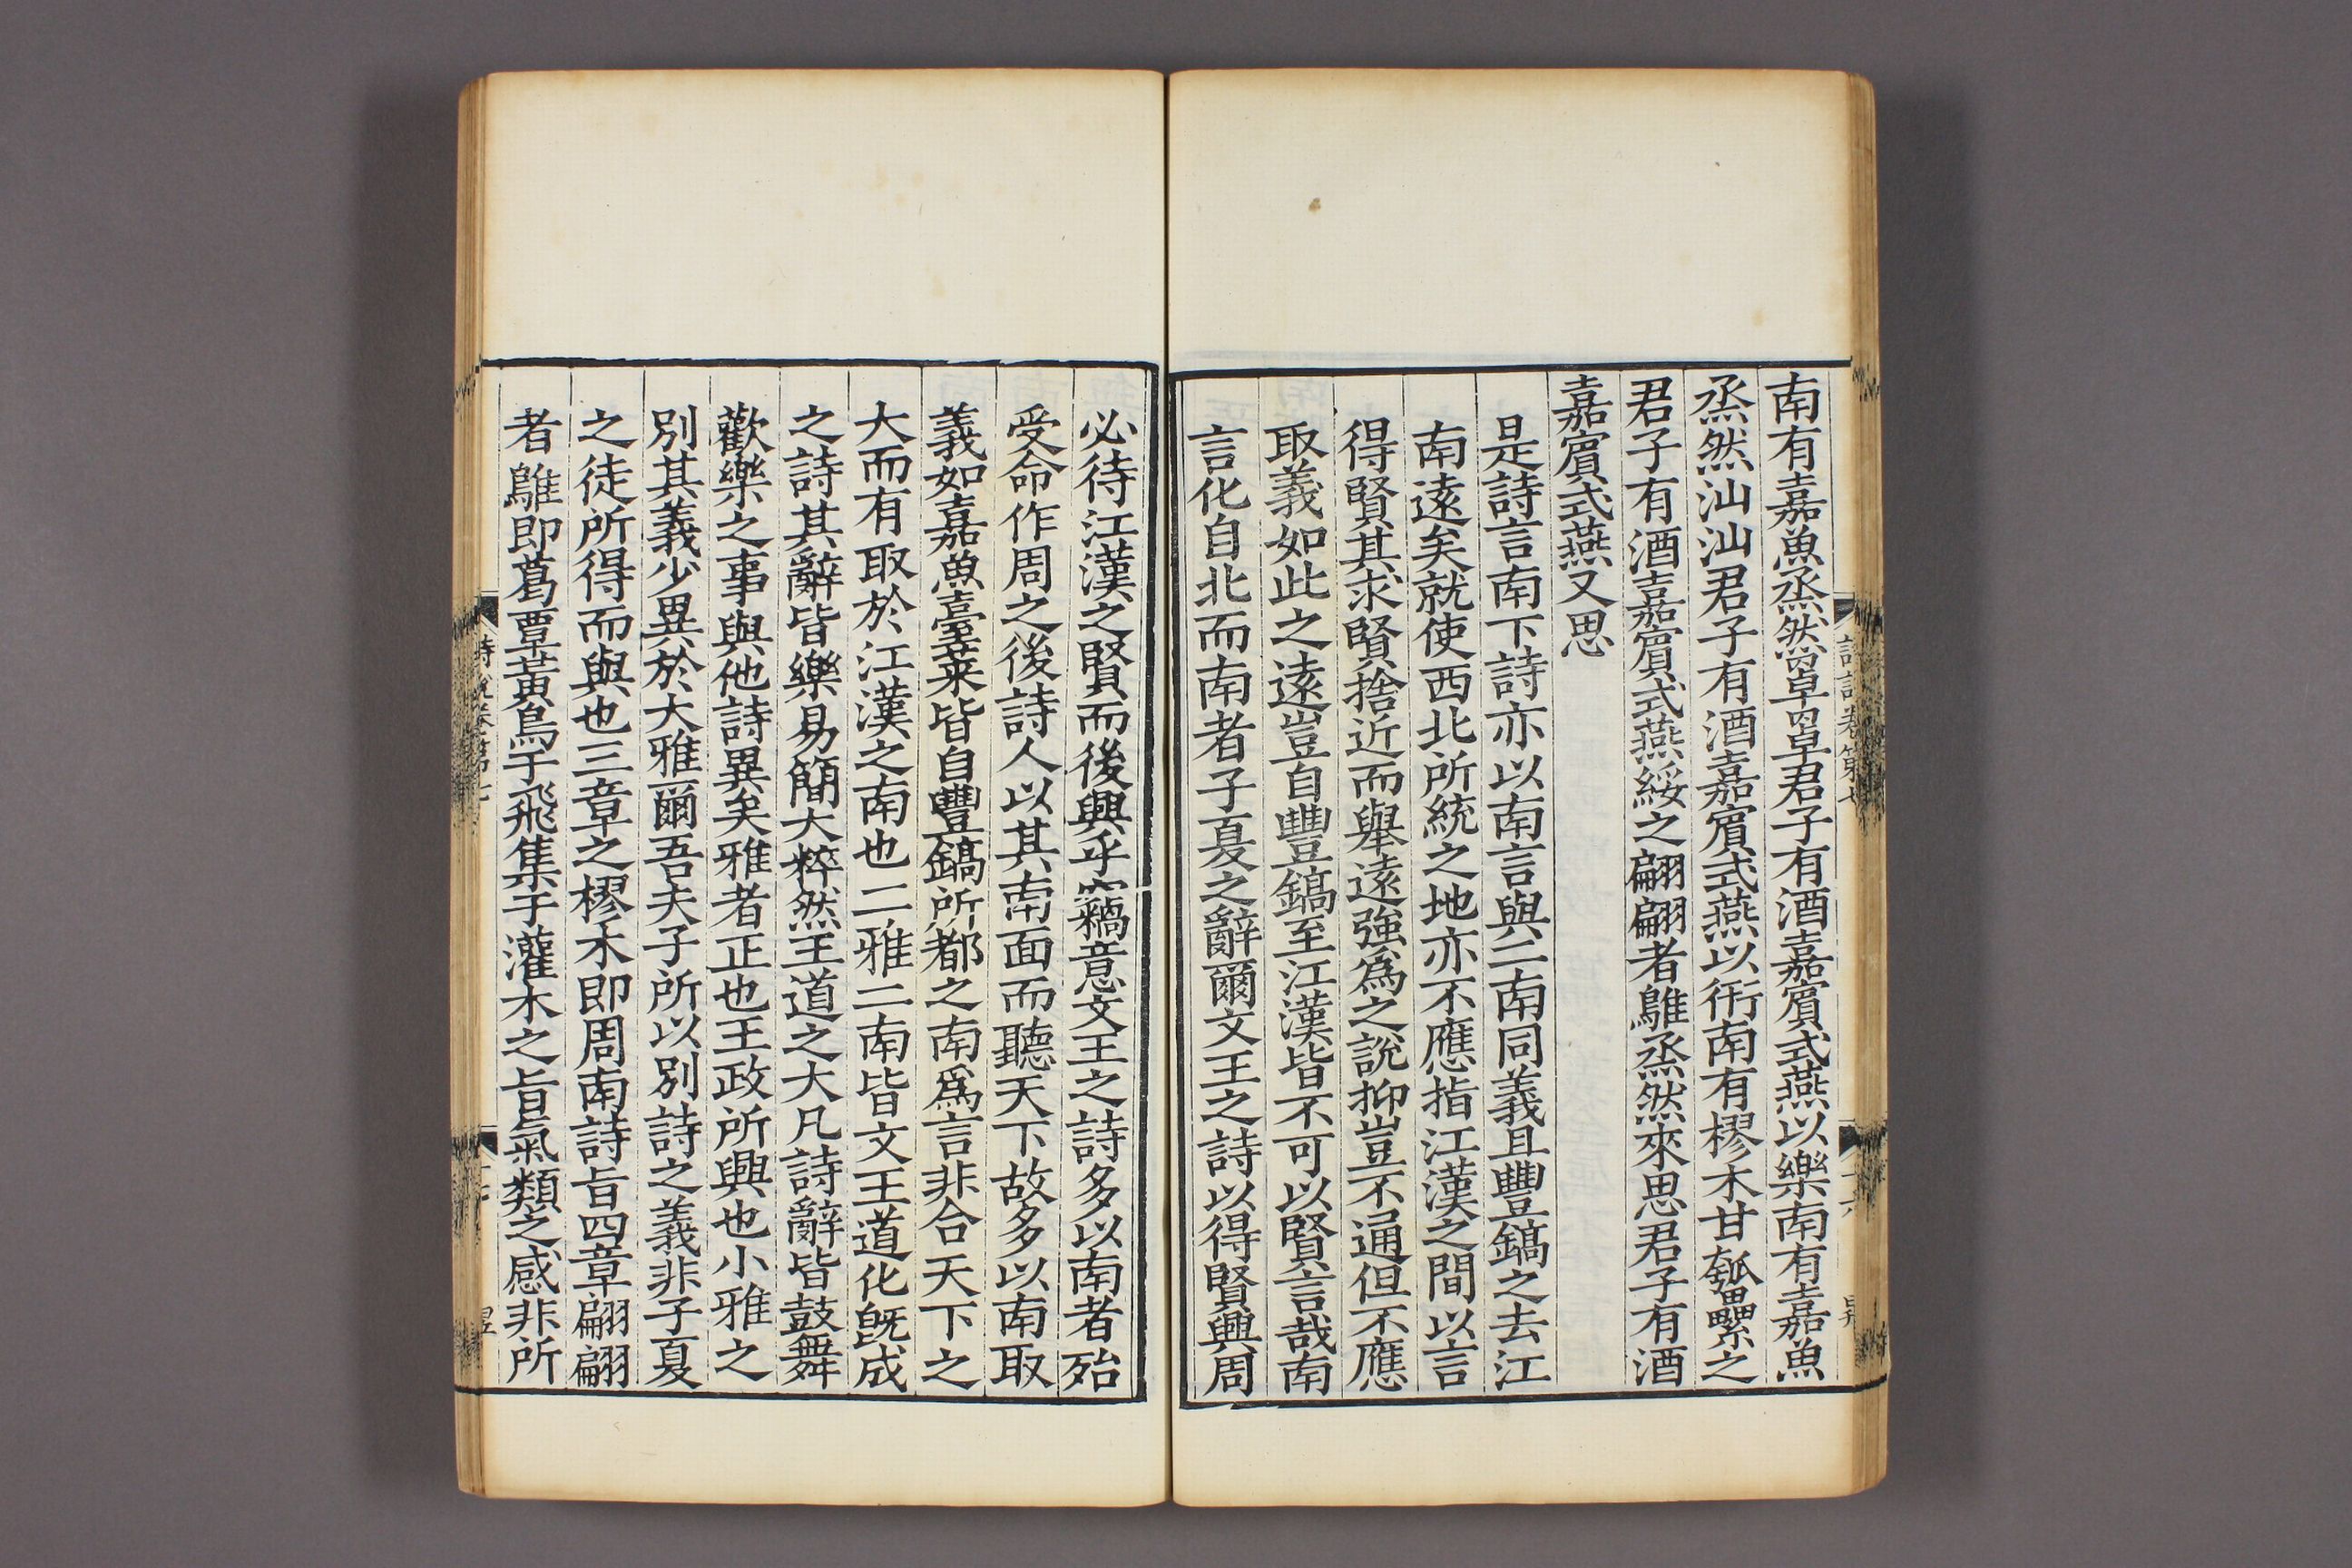 南有嘉魚烝然罩罩君子有酒嘉賓式燕以樂南有嘉魚
烝然汕汕君子有酒嘉賓式燕以衎南有樛木甘瓠纍之
君子有酒嘉賓式燕綏之翩翩者鵻烝然來思君子有酒
嘉賓式燕又思
是詩言南下詩亦以南言與二南同義且豐鎬之去江
南遠矣就使西北所統之地亦不應指江漢之間以言
得賢其求賢捨近而舉遠強爲之說抑豈不通但不應
取義如此之遠豈自豐鎬至江漢皆不可以賢言哉南
言化自北而南者子夏之辭爾文王之詩以得賢興周
必待江漢之賢而後興乎竊意文王之詩多以南者殆
受命作周之後詩人以其南面而聽天下故多以南取
義如嘉魚臺萊皆自豐鎬所都之南爲言非合天下之
大而有取於江漢之南也二雅二南皆文王道化旣成
之詩其辭皆樂易簡大粹然王道之大凡詩辭皆鼓舞
歡樂之事與他詩異矣雅者正也王政所興也小雅之
別其義少異於大雅爾吾夫子所以別詩之義非子夏
之徒所得而與也三章之樛木即周南詩旨四章翩翩
者鵻即葛覃黃鳥于飛集于灌木之旨氣類之感非所
詩說卷第七